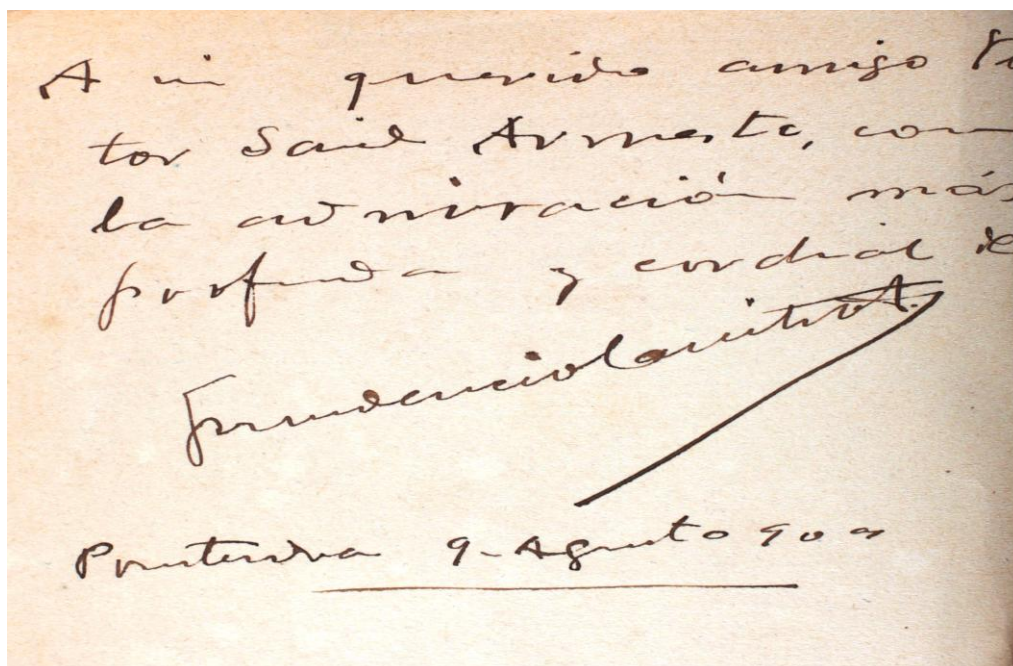 A mi querido amigo Vi
tor Said Armesto, con
la admiración más
profunda y cordial de
Prudencio Canitrot
Pontevedra 9-Agosto 909